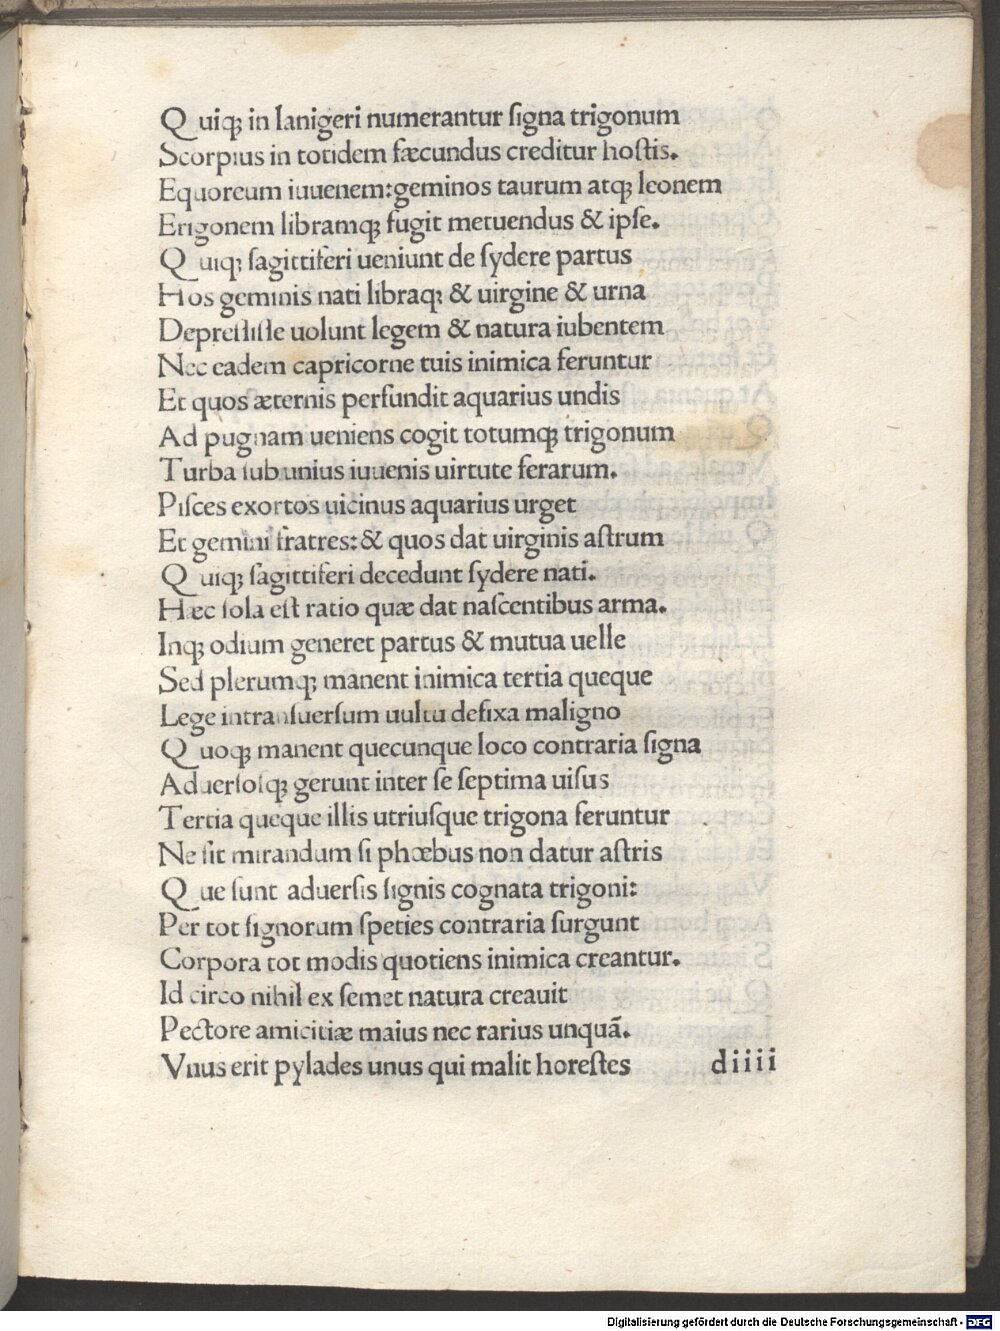 Q uiqꝫ in lanigeri numerantur ſigna trigonum
Scorpius in totidem fæcundus creditur hoſtis.
Equoreum iuuenem:geminos taurum atqꝫ leonem
Erigonem libramqꝫ fugit metuendus & ipſe.
Q uiqꝫ ſagittiferi ueniunt de ſydere partus
Hos geminis nati libraqꝫ & uirgine & urna
Depreſſiſſe uolunt legem & natura iubentem
Nec eadem capricorne tuis inimica feruntur
Et quos æternis perfundit aquarius undis
Ad pugnam ueniens cogit totumqꝫ trigonum
Turba ſub unius iuuenis uirtute ferarum.
Piſces exortos uicinus aquarius urget
Et gemini fratres:& quos dat uirginis aſtrum
Q uiqꝫ ſagittiferi decedunt ſydere nati.
Hæc ſola eſt ratio quæ dat naſcentibus arma.
Inqꝫ odium generet partus & mutua uelle
Sed plerumqꝫ manent inimica tertia queque
Lege intranſuerſum uultu defixa maligno
Q uoqꝫ manent quecunque loco contraria ſigna
Aduerſoſqꝫ gerunt inter ſe ſeptima uiſus
Tertia queque illis utriuſque trigona feruntur
Ne ſit mirandum ſi phœbus non datur aſtris
Q ue ſunt aduerſis ſignis cognata trigoni:
Per tot ſignorum ſpeties contraria ſurgunt
Corpora tot modis quotiens inimica creantur.
Id circo nihil ex ſemet natura creauit
Pectore amicitiæ maius nec rarius unquã.
Vnus erit pylades unus qui malit horeſtes diiii
Digitalisierung gefördert durch die Deutsche Forschungsgemeinschaft - DFG